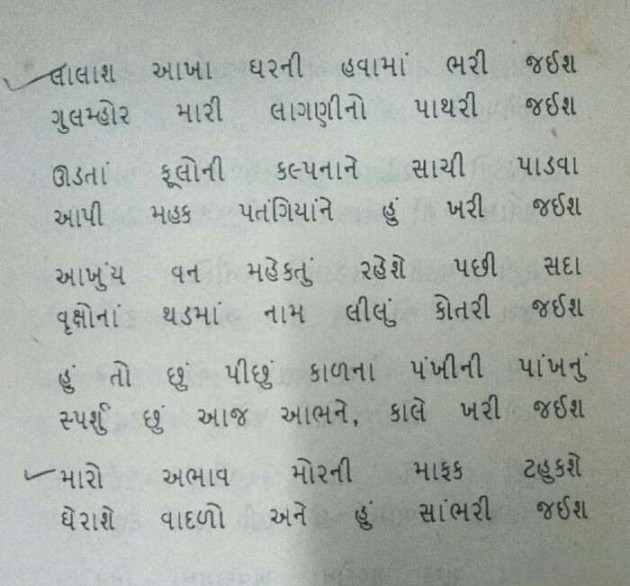 લાલાશ આખા ઘરની હવામાં ભરી જઈશ
ગુલમ્હોર મારી લાગણીનો પાથરી જઈશ
ઊડતાં ફૂલોની કલ્પનાને સાચી પાડવા
આપી મહક પતંગિયાંને હું ખરી જઈશ
આખુંય વન મહેકતું રહેશે પછી સદા
વૃક્ષોનાં થડમાં નામ લીલું કોતરી જઈશ
હું તો છું પીછું કાળના પંખીની પાંખનું
સ્પર્શું છું આજ આભને, કાલે ખરી જઈશ
મારો અભાવ મોરની માફક ટહુકશે
ઘેરાશે વાદળો અને હું સાંભરી જઈશ